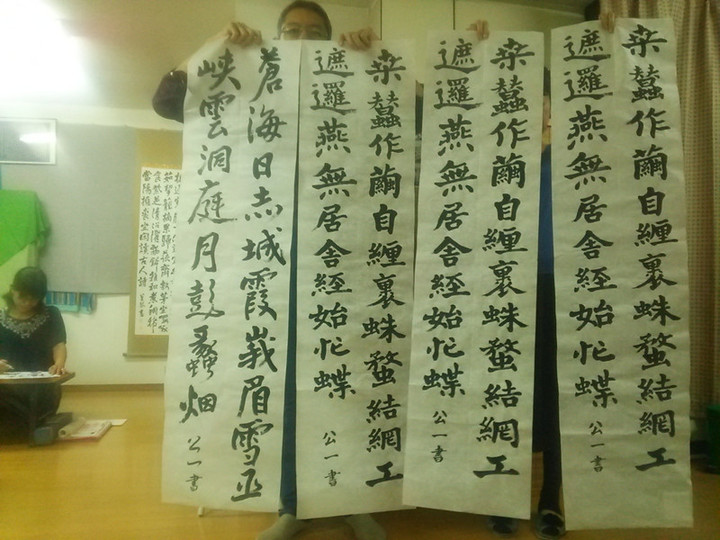 桒蠶作繭自纏裹蛛蝥結網工
遮邏燕無居舍經始忙蝶
公一書
桒蠶作繭自纏裹蛛蝥結網工
遮邏燕無居舍經始忙蝶
公一書
桒蠶作繭自纏裹蛛蝥結網工
遮邏燕無居舍經始忙蝶
公一書
蒼海日赤城霞峩眉雪巫
峽雲洞庭月彭蠡烟
公一書